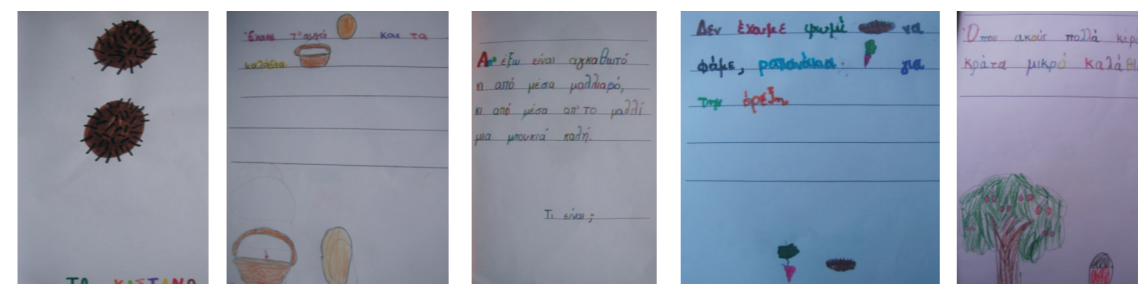 ΤΟ ΚΑΣΤΑΝΟ
Έχασε τ' αυγά και τα
καλάθια
Απ' έξω είναι αγκαθωτό
κι από μέσα μαλλιαρό,
κι από μέσα απ' το μαλλί
μια μπουκιά καλή.
Τι είναι;
Δεν έχουμε ψωμί να
φάμε, ραπανάκια για
την όρεξη
Όπου ακούς πολλά κερά
κράτα μικρό καλάθι